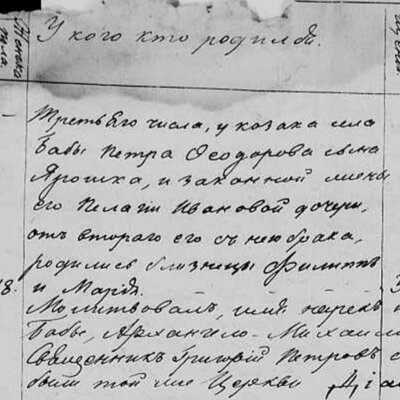 Женска
пола.
У кого кто родился.
Третьего числа, у козака села
Бабы Петра Феодорова сына
Ярошка, и законной жены
его Пелагіи Ивановой дочери,
отъ втораго его съ нею брака,
родились близнецы Филиппъ
и Марѳа.
8.
Молитвовалъ, имя нарекъ
Бабы, Архангело-Михаил
Священникъ Григорій Петровъ с
были той же Церкви Діа